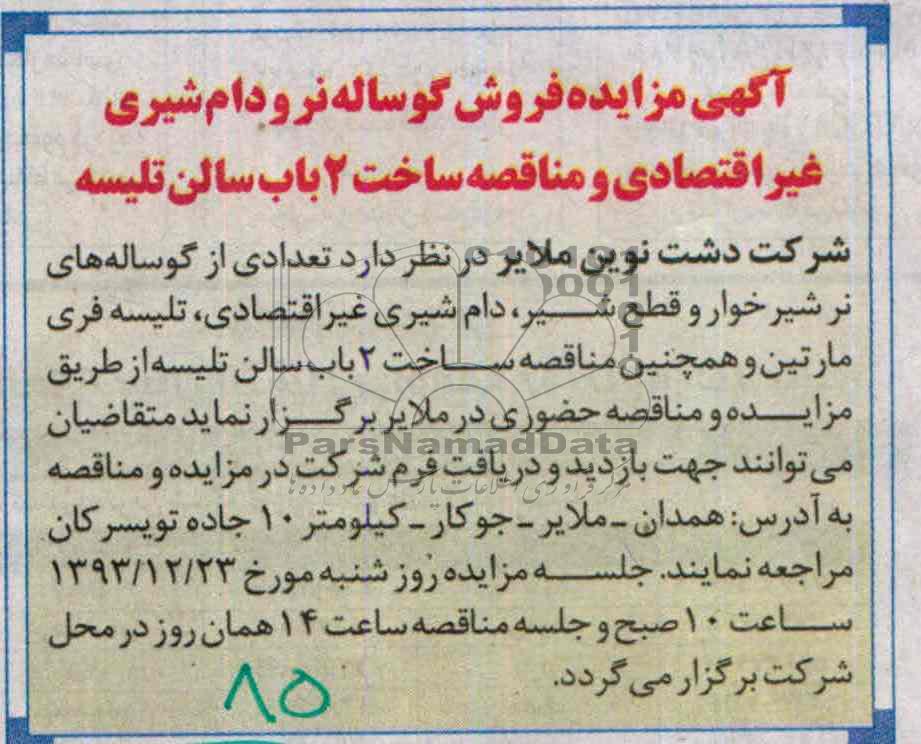 آگهی مزایده فروش گوساله نر و دام شیری
غیر اقتصادی و مناقصه ساخت ۲ باب سالن تلیسه
شرکت دشت نوین ملایر در نظر دارد تعدادی از گوساله‌های
نر شیر خوار و قطع شیر، دام شیری غیر اقتصادی، تلیسه فری
مارتین و همچنین مناقصه ساخت ۲ باب سالن تلیسه از طریق
مزایده و مناقصه حضوری در ملایر برگزار نماید متقاضیان
می توانند جهت بازدید و دریافت فرم شرکت در مزایده و مناقصه
به آدرس: همدان - ملایر - جوکار - کیلومتر ۱۰ جاده تویسرکان
مراجعه نمایند. جلسه مزایده روز شنبه مورخ ۱۳۹۳/۱۲/۲۳
ساعت ۱۰ صبح و جلسه مناقصه ساعت ۱۴ همان روز در محل
شرکت برگزار می گردد.
۸۵
ParsNamadData